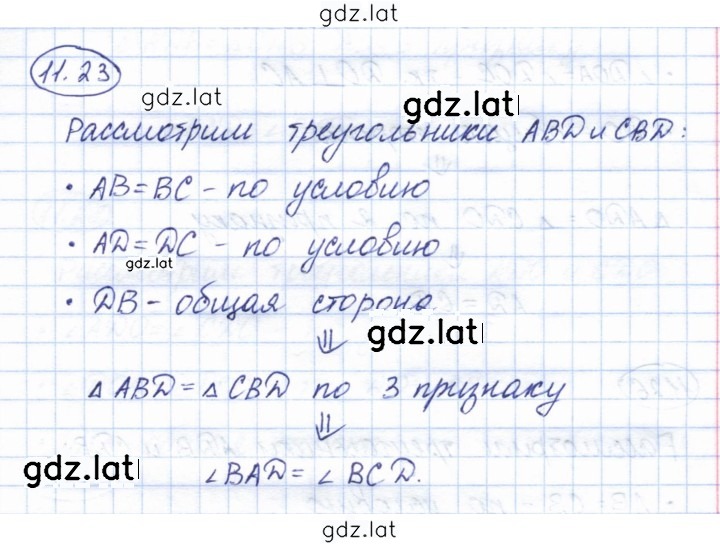 gdz.lat
11.23
gdz.lat
gdz.lat
Рассмотрим треугольники ABD и CBD:
• AB=BC - по условию
• AD=DC - по условию
gdz.lat
• DB - общая сторона.
⇓
gdz.lat
△ ABD = △ CBD по 3 признаку
⇓
gdz.lat
∠BAD = ∠BCD.
gdz.lat